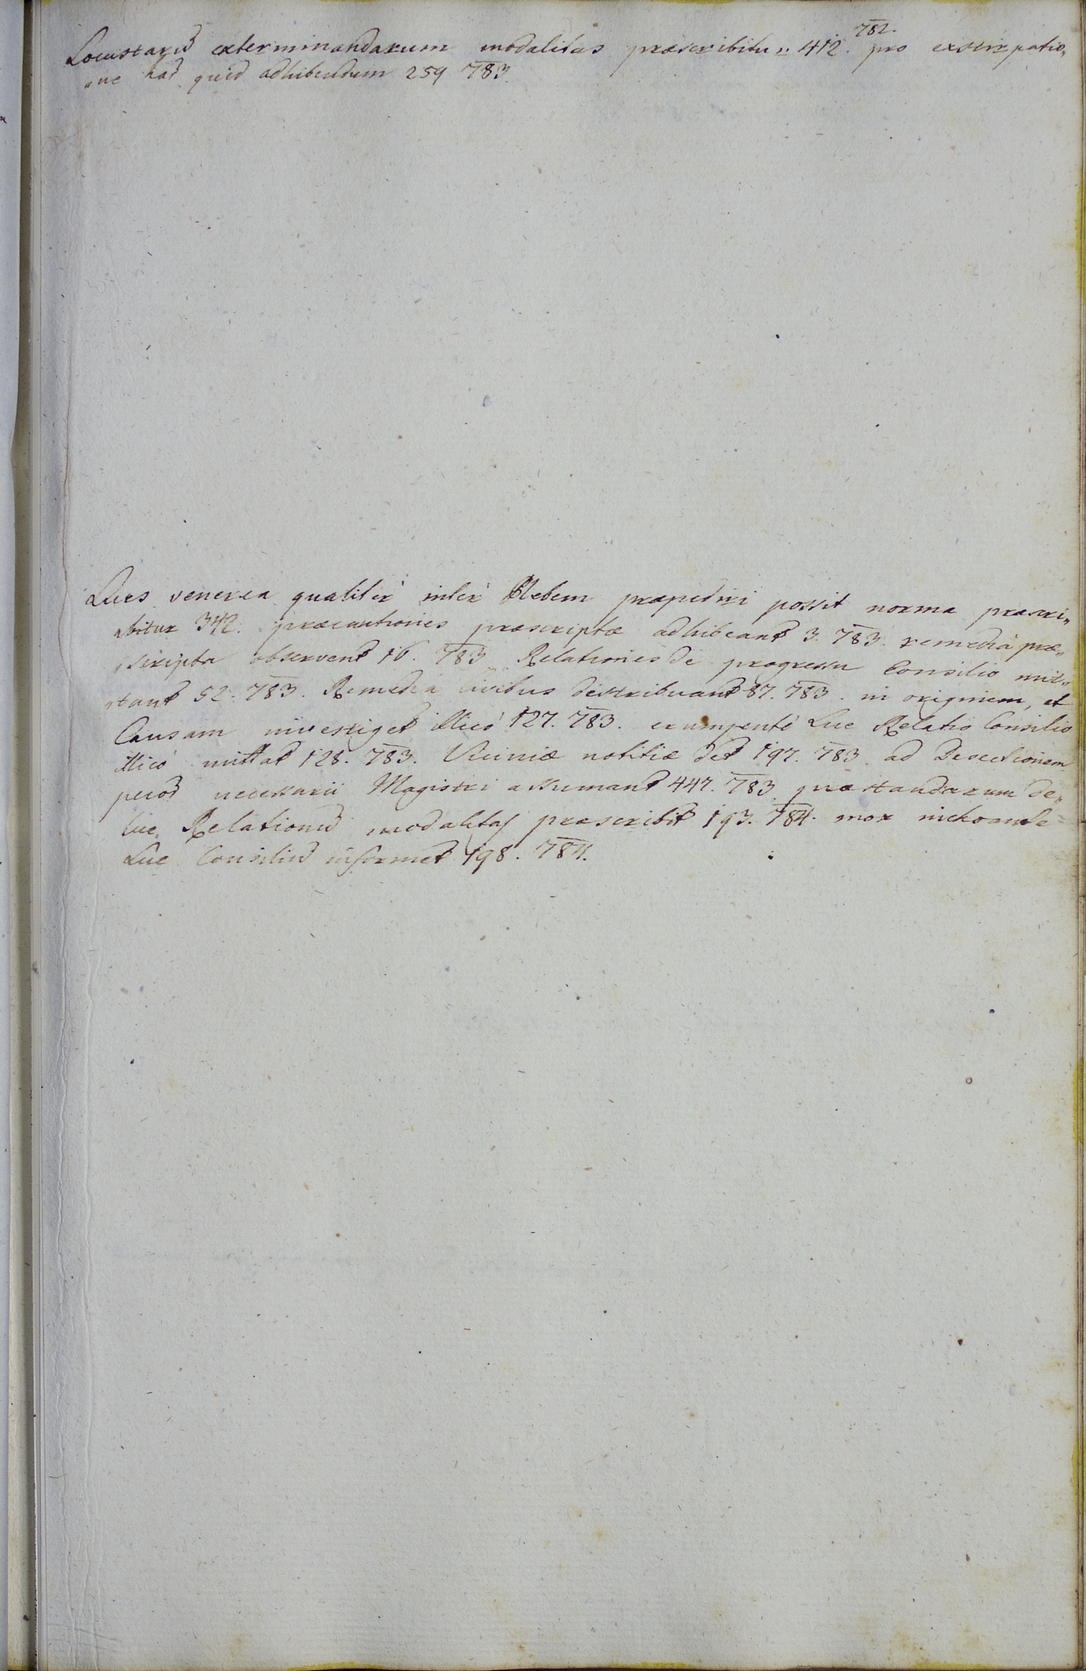 Locustarū exterminandarum modalitas præscribitur 412. 782. pro exstirpatio„
„ne hað quid adhibendum 259 783.
Lues venerea qualiter inter Plebem præpediri possit norma præscri„
„bitur 342. præcautiones præscriptæ adhibeant 3. 783. remedia præ„
„scripta observent 16. 783. Relationes de progressu Consilio mitt„
„tant 52. 783. Remedia civibus distribuant 87. 783. in originem, et
Causam investiget illico 127. 783. erumpente Lue Relatio Consilio
illico mittat 128. 783. Viciniæ notitiæ det 197. 783. ad Desectionem
pecoð necessarii Magistri assumant 447. 783. præstandarum de„
lue. Relationū modalitas præscribit 193. 784. mox inchoande
Lue Consiliū informet 198. 784.